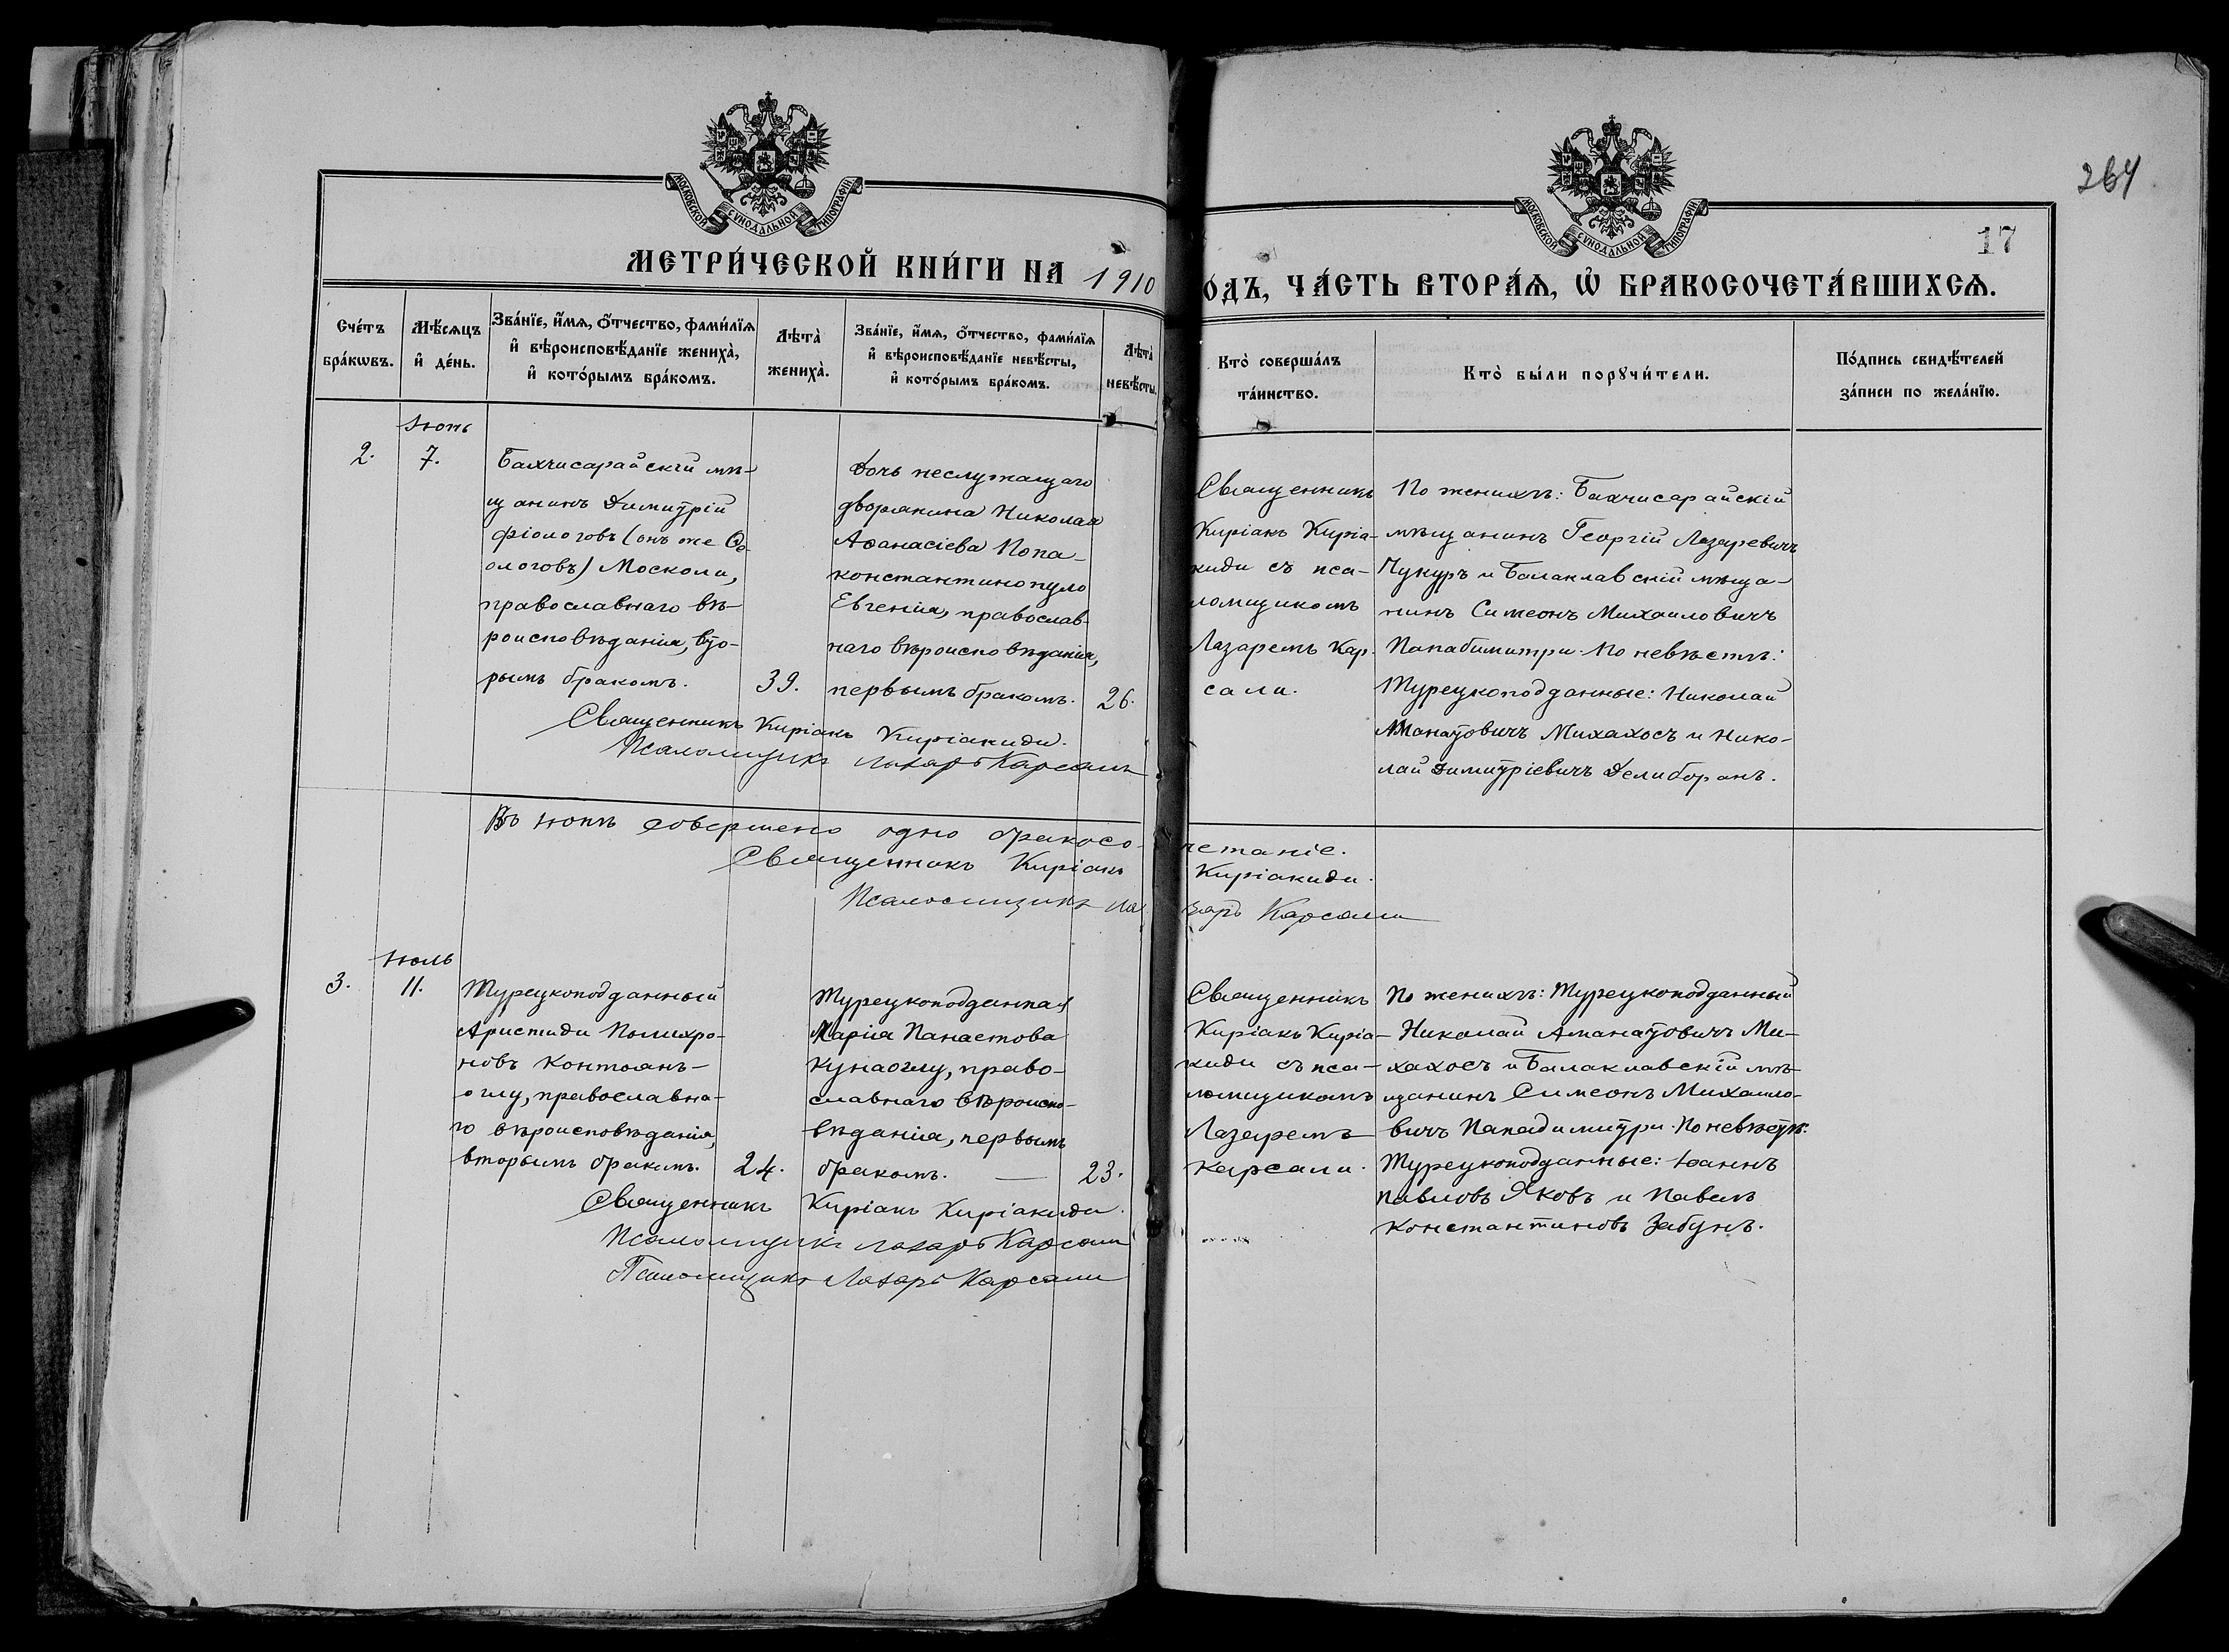 264
17
МОСКОВСКОЙ СѴНОДАЛЬНОЙ ТИПОГРАФІИ
МОСКОВСКОЙ СѴНОДАЛЬНОЙ ТИПОГРАФІИ
МЕТРИ́ЧЕСКОЙ КНИ́ГИ НА 1910
о́дъ, ЧА́СТЬ ВТОРА́Ѧ, Ѡ҆ БРАКОСОЧЕТА́ВШИХСѦ.
Сче́тъ бра́кѡвъ.
Мѣ́сяцъ и҆ де́нь.
Зва́нїе, и҆́мѧ, ѻ҆́тчество, фами́лїѧ
и҆ вѣроисповѣ́данїе жениха̀,
и҆ кото́рымъ бра́комъ.
Лѣта̀ жениха̀.
Зва́нїе, и҆́мѧ, ѻ҆́тчество, фами́лїѧ
и҆ вѣроисповѣ́данїе невѣ́сты,
и҆ кото́рымъ бра́комъ.
Лѣта̀ невѣ́сты.
Кто̀ соверша́лъ
та́инство.
Кто̀ бы́ли порꙋчи́тели.
По́дпись свидѣ́телей
за́писи по жела́нїю.
Іюнь
2.
7.
Бахчисарайскій мѣ-
щанинъ Димитрій
Фіологовъ (онъ же Ѳе-
ологовъ) Москоли,
православнаго вѣ-
роисповѣданія, вто-
рымъ бракомъ.
39.
Дочь неслужащаго
дворянина Николая
Аѳанасіева Попа-
константинопуло
Евгенія, православ-
наго вѣроисповѣданія,
первымъ бракомъ.
26.
Священникъ
Киріакъ Киріа-
киди съ пса-
ломщикомъ
Лазаремъ Кар-
сали.
По женихѣ: Бахчисарайскій
мѣщанинъ Георгій Лазаревичъ
Чукуръ и Балаклавскій мѣща-
нинъ Симеонъ Михаиловичъ
Пападимитри. По невѣстѣ:
Турецкоподданные: Николай
Аманатовичъ Михахосъ и Нико-
лай Димитріевичъ Делиборанъ.
Священникъ Киріакъ Киріакиди.
Псаломщикъ Лазарь Карсали
Въ Іюнѣ совершено одно бракосо-
четаніе.
Священникъ Киріакъ Киріакиди.
Псаломщикъ Лазарь Карсали
Іюль
3.
11.
Турецкоподданный
Аристиди Полихро-
новъ Контоянъ-
оглу, православна-
го вѣроисповѣданія,
вторымъ бракомъ.
24.
Турецкоподданная
Марія Панаетова
Кунаоглу, право-
славнаго вѣроиспо-
вѣданія, первымъ
бракомъ.
23.
Священникъ
Киріакъ Киріа-
киди съ пса-
ломщикомъ
Лазаремъ
Карсали.
По женихѣ: Турецкоподданный
Николай Аманатовичъ Ми-
хахосъ и Балаклавскій мѣ-
щанинъ Симеонъ Михаило-
вичъ Пападимитри. По невѣстѣ:
Турецкоподданные: Іоаннъ
Павловъ Яковъ и Павелъ
Константиновъ Забунъ.
Священникъ Киріакъ Киріакиди.
Псаломщикъ Лазарь Карсали
Псаломщикъ Лазарь Карсали